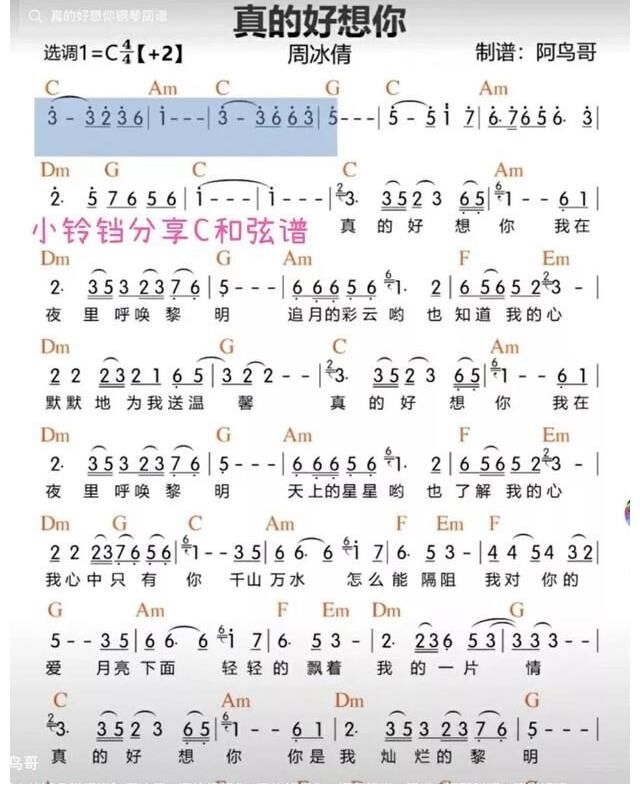 真的好想你钢琴简谱
真的好想你
选调1=C4/4【+2】 周冰倩 制谱：阿鸟哥
C Am C G C Am
3 - 3 2 3 6 | 1 - - - | 3 - 3 6 6 3 | 5 - - - | 5 - 5 1 7 | 6. 7 6 5 6. 3 |
Dm G C C Am
2. 5 7 6 5 6 | 1 - - - | 1 - - - | 2 3. 3 5 2 3 6 5 | 6 1 - - 6 1 |
真 的 好 想 你 我 在
小铃铛分享C和弦谱
Dm G Am F Em
2. 3 5 3 2 3 7 6 | 5 - - - | 6 6 6 5 6 6 1. 2 | 6 5 6 5 2 2 3 - |
夜 里 呼 唤 黎 明 追 月 的 彩 云 哟 也 知 道 我 的 心
Dm G C Am
2 2 2 3 2 1 6 5 | 3 2 2 - - | 2 3. 3 5 2 3 6 5 | 6 1 - - 6 1 |
默 默 地 为 我 送 温 馨 真 的 好 想 你 我 在
Dm G Am F Em
2. 3 5 3 2 3 7 6 | 5 - - - | 6 6 6 5 6 6 1. 2 | 6 5 6 5 2 2 3 - |
夜 里 呼 唤 黎 明 天 上 的 星 星 哟 也 了 解 我 的 心
Dm G C Am F Em F
2 2 2 3 7 6 5 6 | 6 1 - - 3 5 | 6 6. 6 6 1 7 | 6. 5 3 - | 4 4 5 4 3 2 |
我 心 中 只 有 你 千 山 万 水 怎 么 能 隔 阻 我 对 你 的
G Am F Em Dm G
5 - - 3 5 | 6 6. 6 6 1 7 | 6. 5 3 - | 2. 2 3 6 5 3 | 3 3 3 - - |
爱 月 亮 下 面 轻 轻 的 飘 着 我 的 一 片 情
C Am Dm G
2 3. 3 5 2 3 6 5 | 6 1 - - 6 1 | 2. 3 5 3 2 3 7 6 | 5 - - - |
真 的 好 想 你 你 是 我 灿 烂 的 黎 明
鸟哥